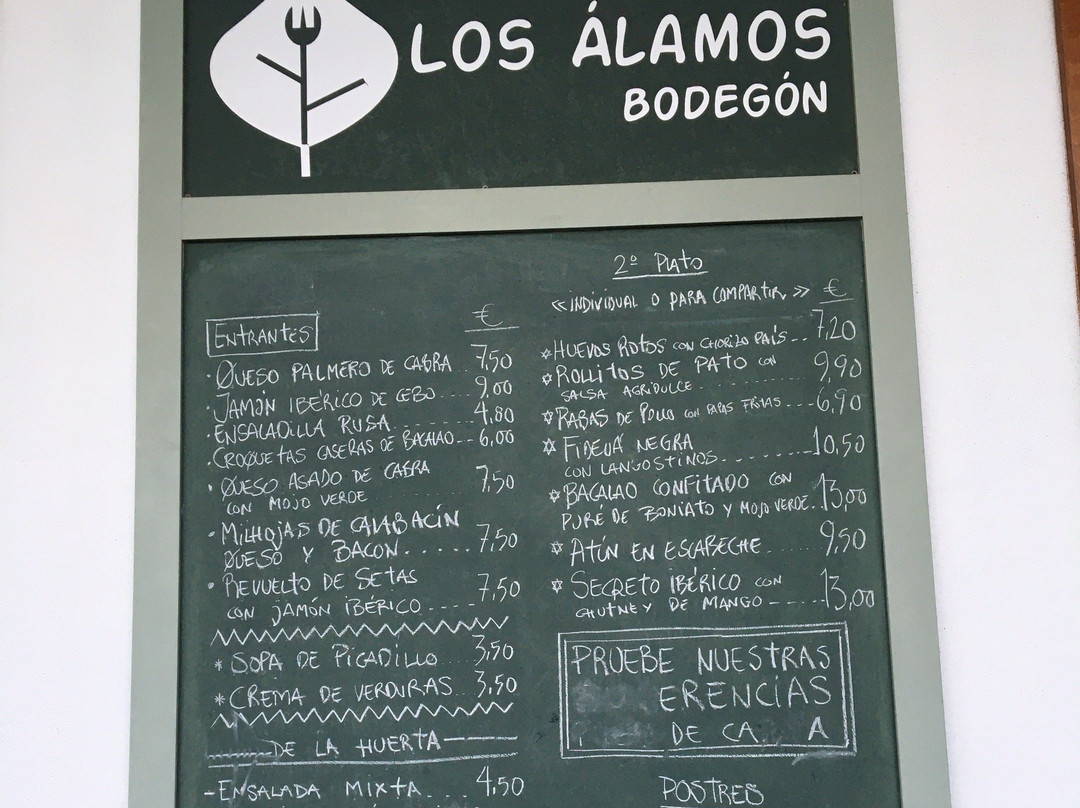 LOS ÁLAMOS
BODEGÓN
ENTRANTES €
· QUESO PALMERO DE CABRA .. 7,50
· JAMÓN IBÉRICO DE CEBO ..... 9,00
· ENSALADILLA RUSA ......... 4,80
· CROQUETAS CASERAS DE BACALAO --- 6,00
· QUESO ASADO DE CABRA
CON MOJO VERDE ......... 7,50
· MILHOJAS DE CALABACÍN
QUESO Y BACON ...... 7,50
· REVUELTO DE SETAS
CON JAMÓN IBÉRICO ---- 7,50
* SOPA DE PICADILLO ... 3,50
* CREMA DE VERDURAS ... 3,50
DE LA HUERTA
- ENSALADA MIXTA ... 4,50
2º PLATO
« INDIVIDUAL O PARA COMPARTIR » €
HUEVOS ROTOS CON CHORIZO PAÍS -- 7,20
ROLLITOS DE PATO CON
SALSA AGRIDULCE ............ 9,90
RABAS DE POLLO CON PAPAS FRITAS --- 6,90
FIDEUÁ NEGRA
CON LANGOSTINOS ........... 10,50
BACALAO CONFITADO CON
PURÉ DE BONIATO Y MOJO VERDE . 13,00
ATÚN EN ESCABECHE ....... 9,50
SECRETO IBÉRICO CON
CHUTNEY DE MANGO ----- 13,00
PRUEBE NUESTRAS
ERENCIAS
DE CA A
POSTRES